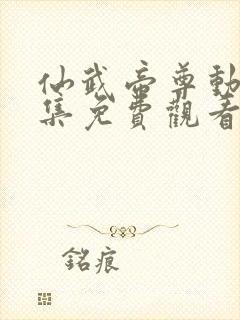 仙武帝尊動
集免費觀看
銘痕